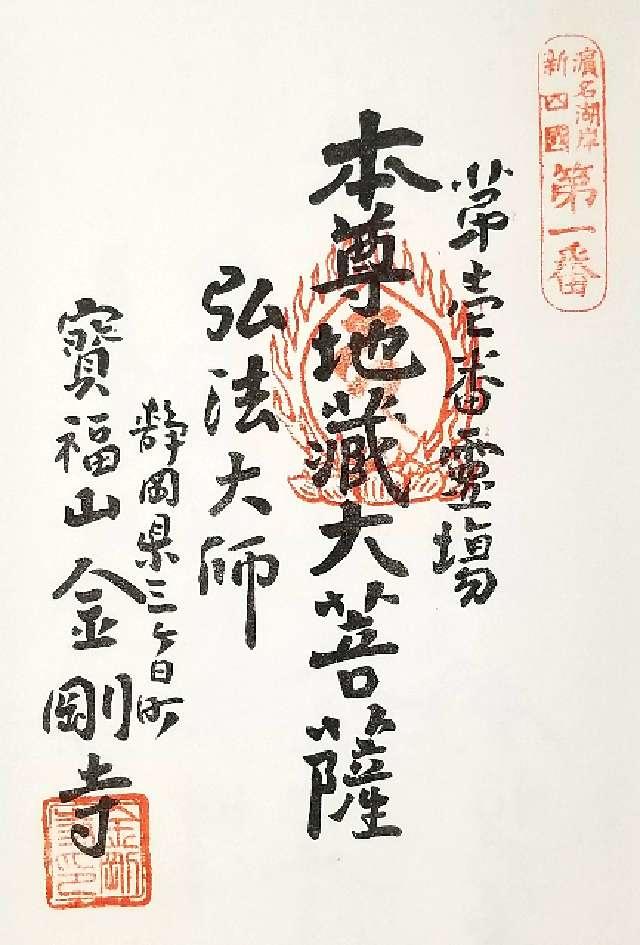 濱名湖岸
新四國
第一番
第壱番靈場
本尊地藏大菩薩
弘法大師
静岡県三ヶ日町
寳福山金剛寺
金剛
寺印